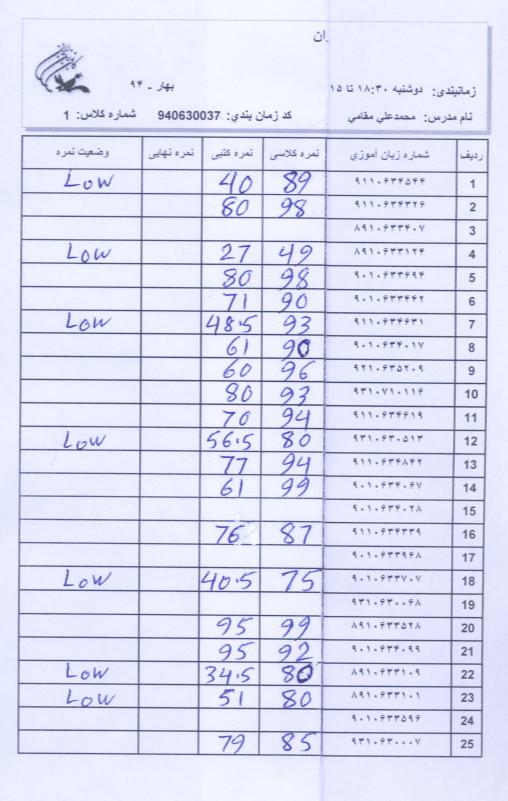 ران
زمانبندی: دوشنبه ۱۸:۳۰ تا ۱۵ بهار - ۹۴
نام مدرس: محمدعلی مقامی کد زمان بندی: 940630037 شماره کلاس: 1
ردیف شماره زبان آموزی نمره کلاسی نمره کتبی نمره نهایی وضعیت نمره
1 ۹۱۱۰۶۳۴۵۴۴ 89 40 Low
2 ۹۱۱۰۶۳۴۳۲۶ 98 80
3 ۸۹۱۰۶۳۳۴۰۷
4 ۸۹۱۰۶۳۳۱۲۴ 49 27 Low
5 ۹۰۱۰۶۳۳۶۹۴ 98 80
6 ۹۰۱۰۶۳۳۴۴۲ 90 71
7 ۹۱۱۰۶۳۴۶۳۱ 93 48.5 Low
8 ۹۰۱۰۶۳۴۰۱۷ 90 61
9 ۹۲۱۰۶۳۵۲۰۹ 96 60
10 ۹۳۱۰۷۱۰۱۱۶ 93 80
11 ۹۱۱۰۶۳۴۶۱۹ 94 70
12 ۹۳۱۰۶۳۰۵۱۳ 80 56.5 Low
13 ۹۱۱۰۶۳۴۸۴۲ 94 77
14 ۹۰۱۰۶۳۴۰۶۷ 99 61
15 ۹۰۱۰۶۳۴۰۲۸
16 ۹۱۱۰۶۳۴۳۳۹ 87 76
17 ۹۰۱۰۶۳۳۹۶۸
18 ۹۰۱۰۶۳۳۷۰۷ 75 40.5 Low
19 ۹۳۱۰۶۳۰۰۶۸
20 ۸۹۱۰۶۳۳۵۲۸ 99 95
21 ۹۰۱۰۶۳۴۰۹۹ 92 95
22 ۸۹۱۰۶۳۳۱۰۹ 80 34.5 Low
23 ۸۹۱۰۶۳۳۱۰۱ 80 51 Low
24 ۹۰۱۰۶۳۳۵۹۶
25 ۹۳۱۰۶۳۰۰۰۷ 85 79